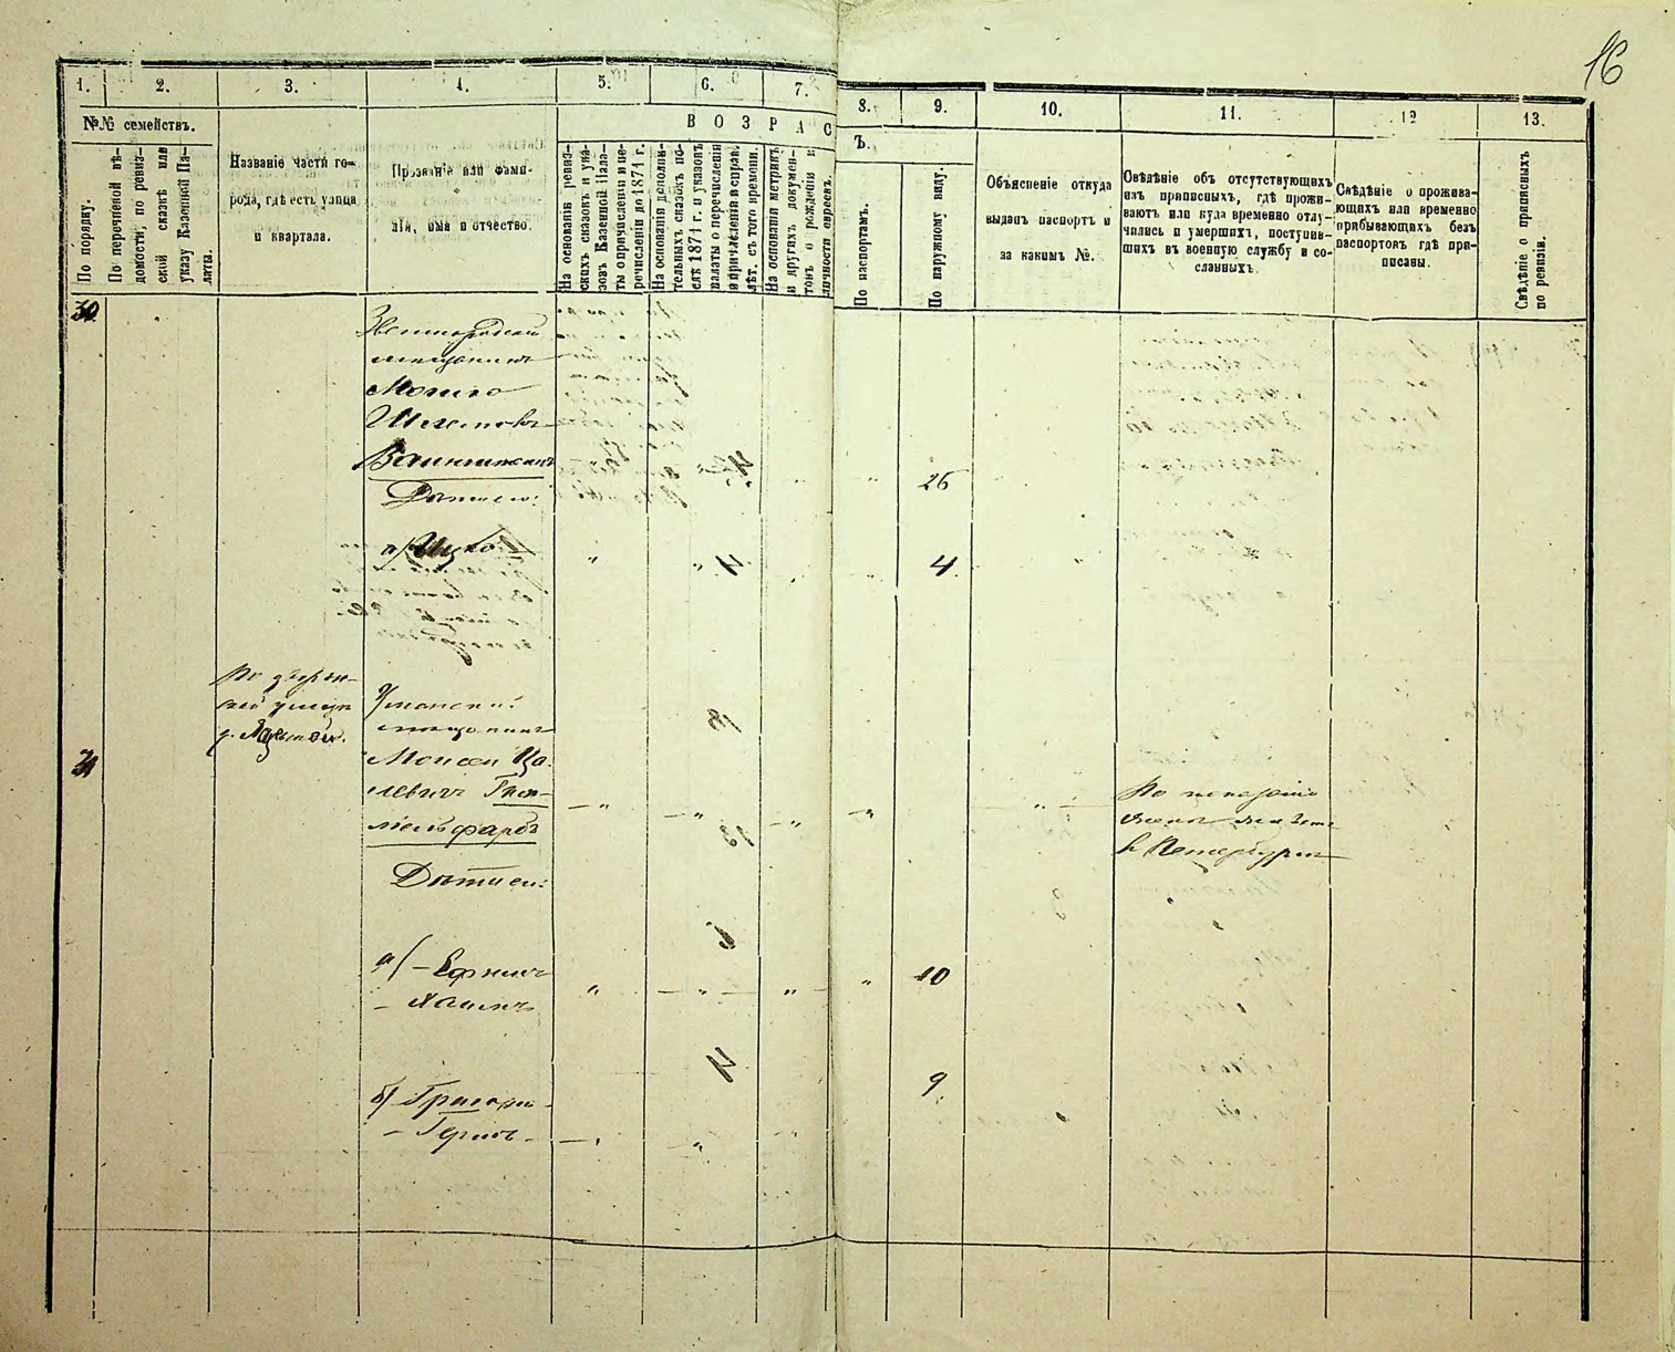 16
1. 2. 3. 4. 5. 6. 7. 8. 9. 10. 11. 12 13.
№№ семействъ.
По порядку.
По перечневой вѣ-
домости, по ревиз-
ской сказкѣ или
указу Казенной Па-
латы.
Названіе части го-
рода, гдѣ есть улица
и квартала.
Прозваніе или фами-
лія, имя и отчество.
ВОЗРАСТЪ.
На основаніи ревиз-
скихъ сказокъ и ука-
зовъ Казенной Пала-
ты о причисленіи и пе-
речисленіи до 1871 г.
На основаніи дополни-
тельныхъ сказокъ по-
слѣ 1871 г. и указовъ
палаты о перечисленіи
и причисленіи и справ.
лѣт. съ того времени.
На основаніи метрикъ
и другихъ докумен-
товъ о рожденіи и
личности евреевъ.
По паспортамъ.
По наружному виду.
Объясненіе откуда
выданъ паспортъ и
за какимъ №.
Свѣдѣніе объ отсутствующихъ
изъ приписныхъ, гдѣ прожи-
ваютъ или куда временно отлу-
чились и умершихъ, поступив-
шихъ въ военную службу и со-
сланныхъ.
Свѣдѣніе о прожива-
ющихъ или временно
прибывающихъ безъ
паспортовъ гдѣ при-
писаны.
Свѣдѣніе о приписныхъ
по ревизіи.
30
Звенигородскій
мещанинъ
Мошко
Шлемовъ
Ваинштеинъ 26
Дѣти его:
а/ Ицко " " " 4
31
Уманскій
мещанинъ
Моисей
левичъ Гим-
мельфарбъ
По показанію
жены
въ Петербургѣ
Дѣти его:
а/ Ефимъ
Хаимъ " " " " 10
б/ Григорій 9
Гершъ